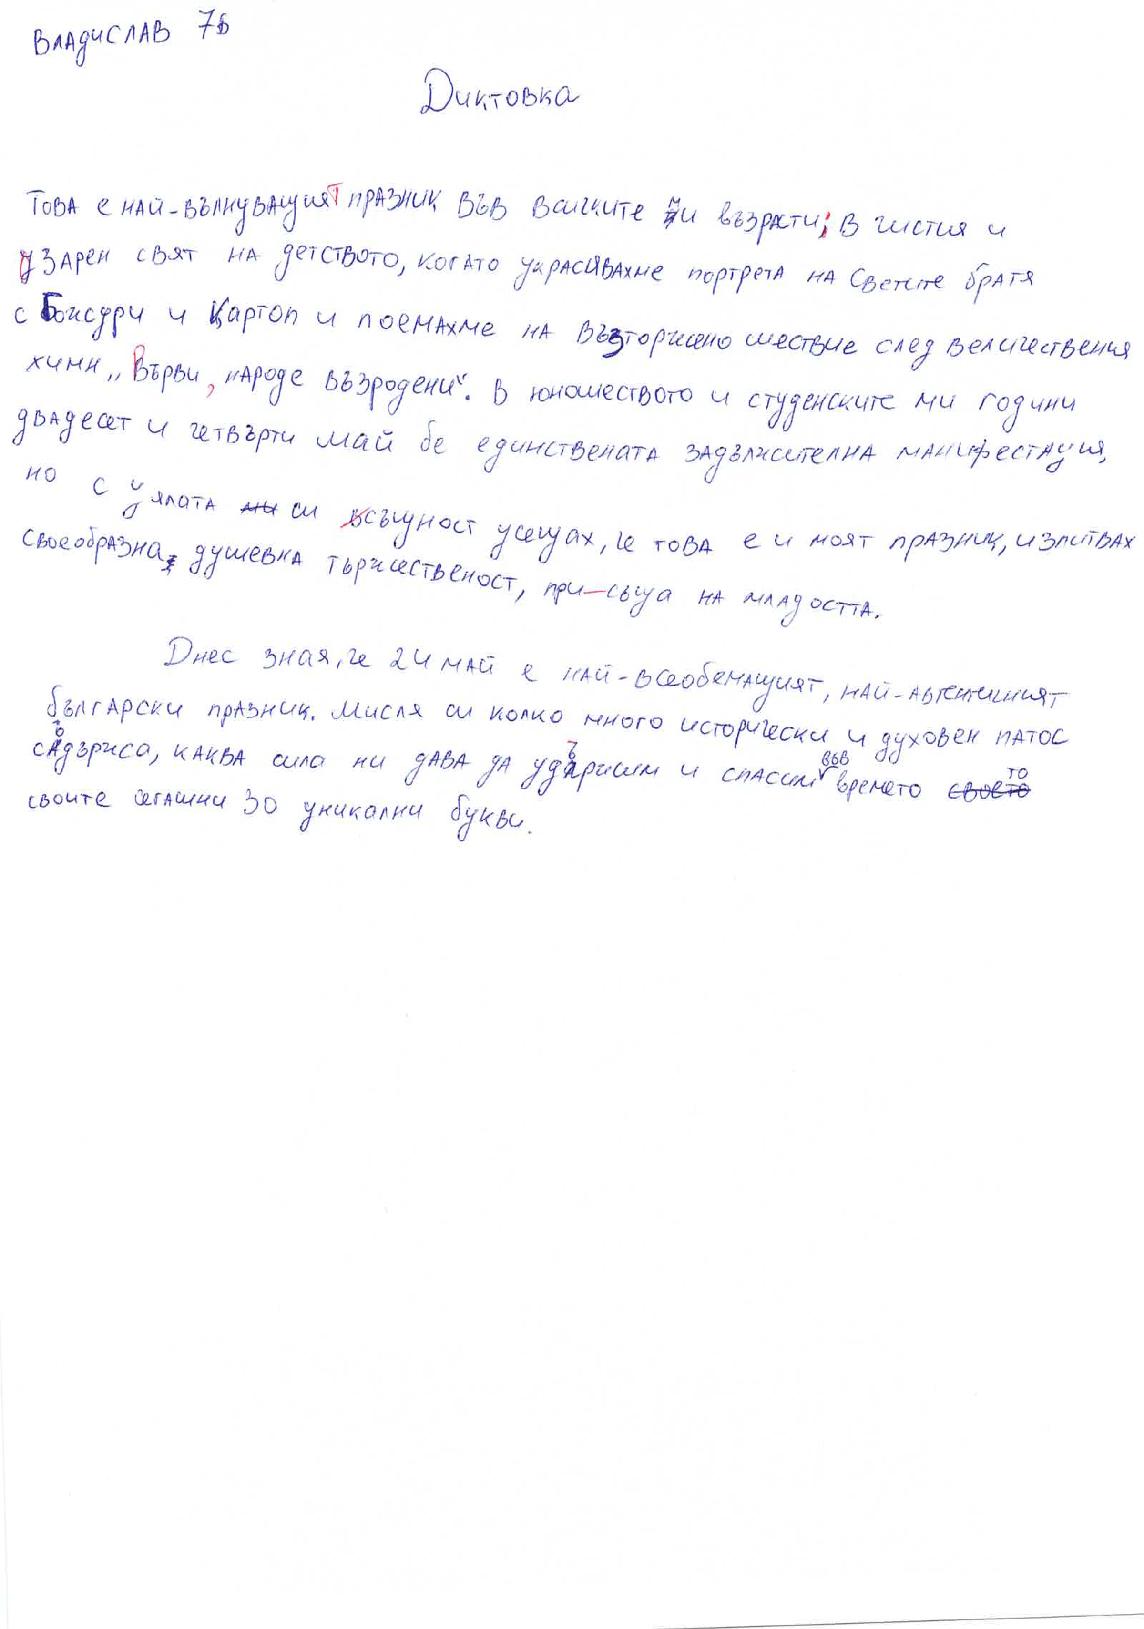 Владислав 7б
Диктовка
Това е най-вълнуващият празник във всичките ми възрасти; в чистия и
узарен свят на детството, когато украсявахме портрета на Светите братя
с Божури и Картоп и поемахме на възторжено шествие след величествения
химн „Върви, народе възродени“. В юношеството и студенските ми години
двадесет и четвърти май бе единствената задължителна манифестация,
но с цялата си същност усещах, че това е и моят празник, изпитвах
своеобразна душевна тържественост, при-съща на младостта.
Днес зная, че 24 май е най-всеобемащият, най-автентичният
български празник. Мисля си колко много исторически и духовен патос
съдържа, каква сила ни дава да удържим и спасим във времето
своите сегашни 30 уникални букви.